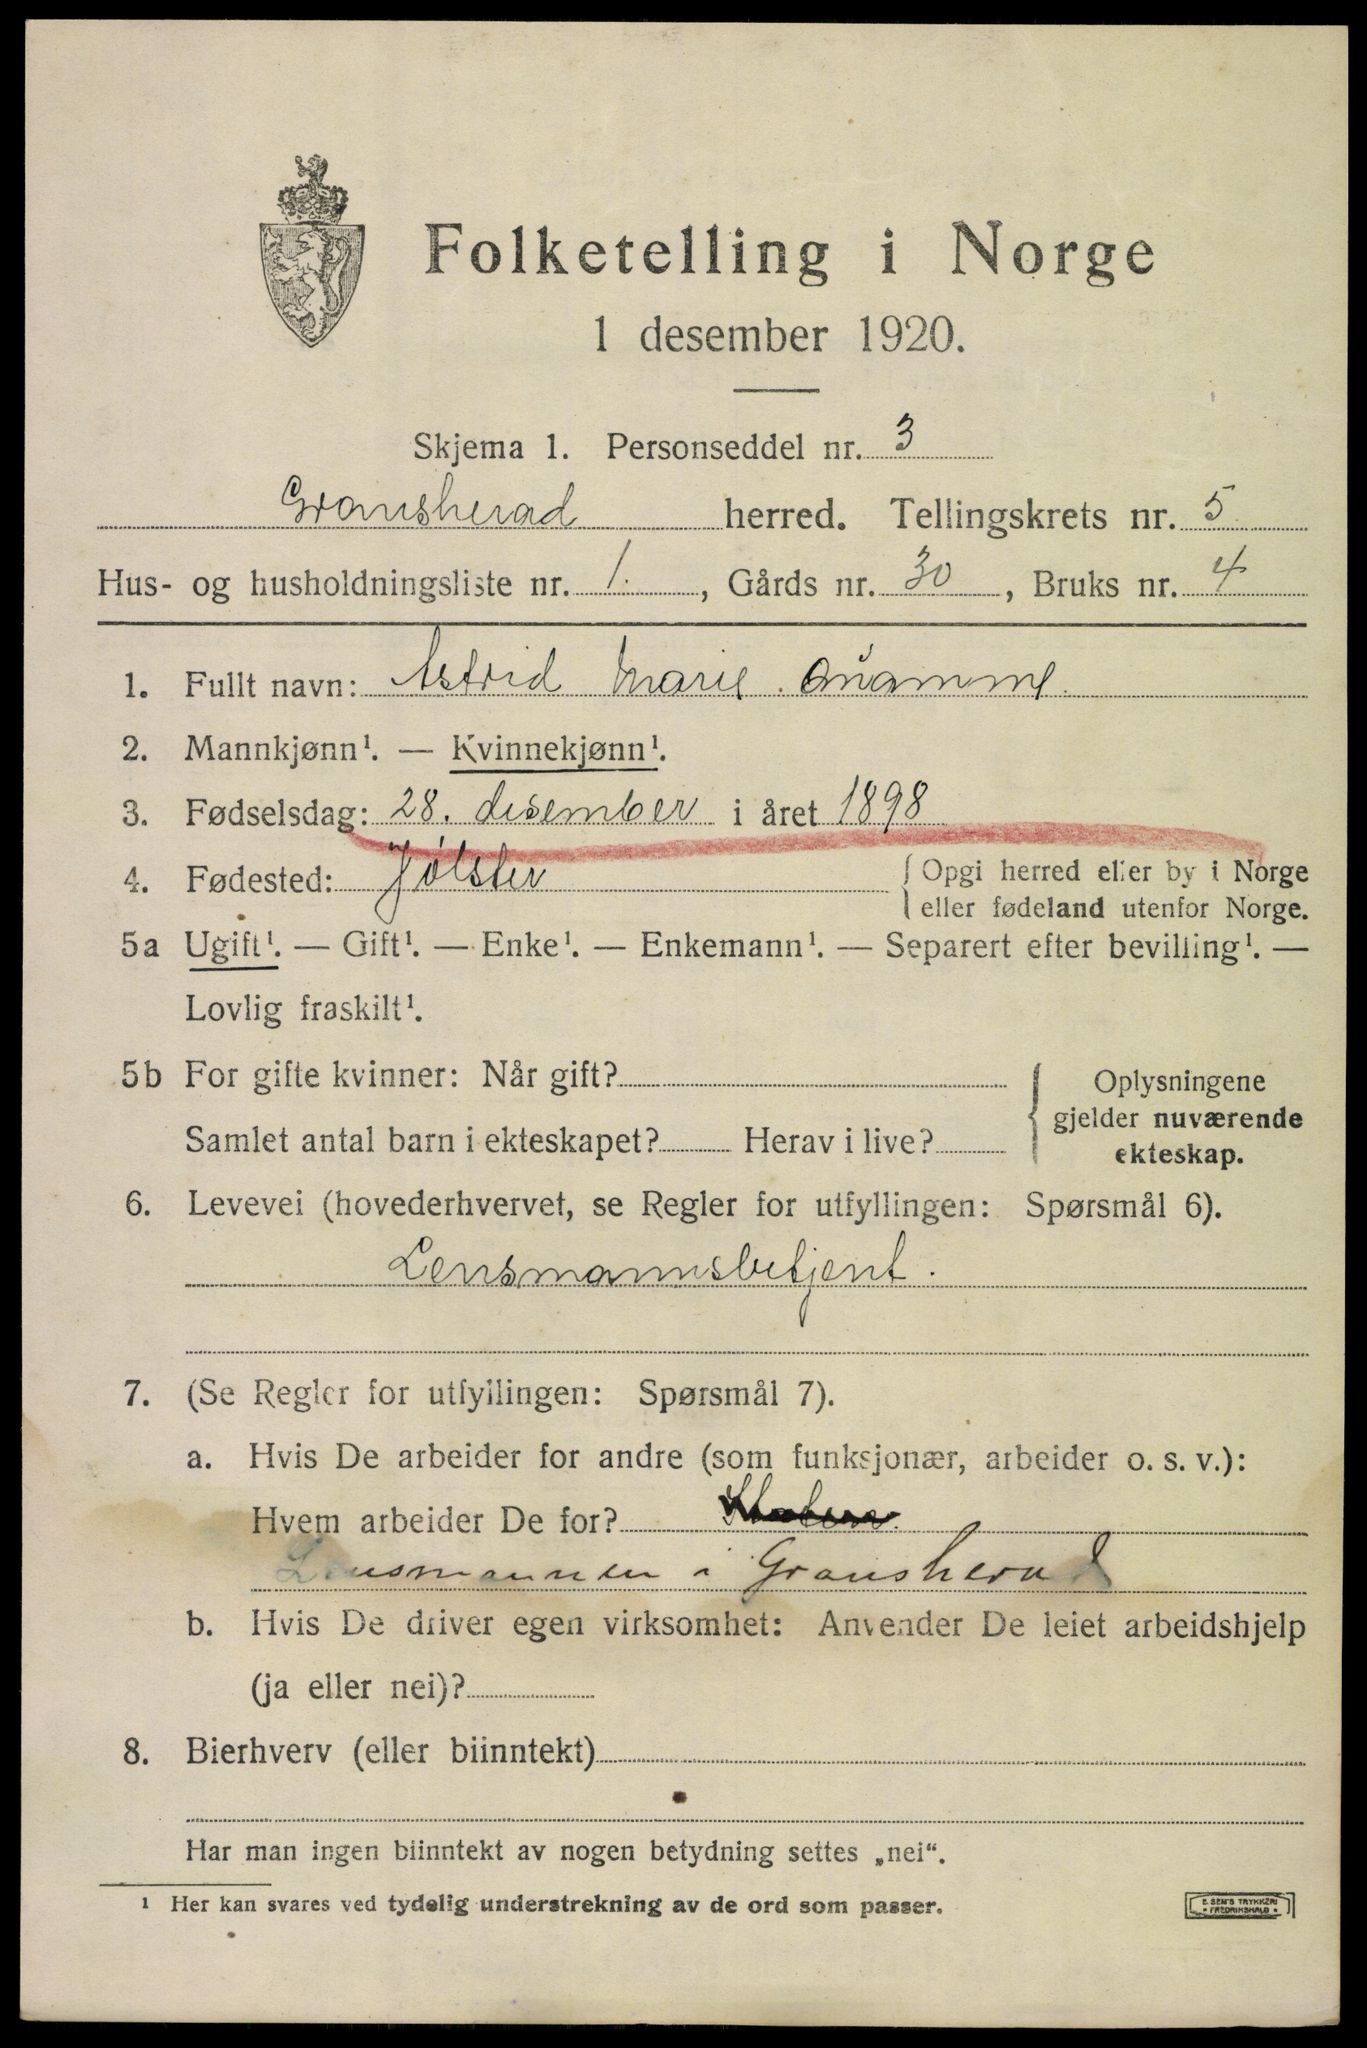 Folketelling i Norge
1 desember 1920.
Skjema 1. Personseddel nr. 3
Gransherad herred. Tellingskrets nr. 5
Hus- og husholdningsliste nr. 1. , Gårds nr. 30 , Bruks nr. 4
1. Fullt navn: Astrid Marie
2. Mannkjønn¹. — Kvinnekjønn¹.
3. Fødselsdag: 28. desember i året 1898
4. Fødested: Jølster { Opgi herred eller by i Norge
eller fødeland utenfor Norge.
5a Ugift¹. — Gift¹. — Enke¹. — Enkemann¹. — Separert efter bevilling¹. —
Lovlig fraskilt¹.
5b For gifte kvinner: Når gift?
Samlet antal barn i ekteskapet? Herav i live?
Oplysningene
gjelder nuværende
ekteskap.
6. Levevei (hovederhvervet, se Regler for utfyllingen: Spørsmål 6).
Lensmannsbetjent.
7. (Se Regler for utfyllingen: Spørsmål 7).
a. Hvis De arbeider for andre (som funksjonær, arbeider o. s. v.):
Hvem arbeider De for?
Lensmannen i Gransherad
b. Hvis De driver egen virksomhet: Anvender De leiet arbeidshjelp
(ja eller nei)?
8. Bierhverv (eller biinntekt)
Har man ingen biinntekt av nogen betydning settes „nei“.
¹ Her kan svares ved tydelig understrekning av de ord som passer.
E. SEM'S TRYKKERI
• FREDRIKSHALD •